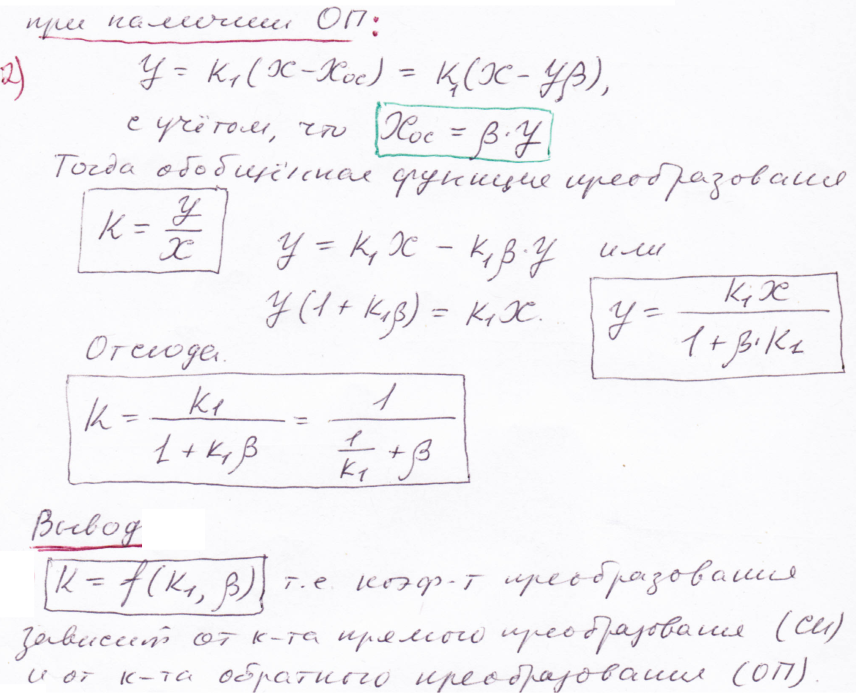 при наличии ОП:
2) y = K₁(x - xос) = K₁(x - yβ),
с учётом, что xос = β·y
Тогда обобщённая функция преобразования
K = y/x
y = K₁x - K₁β·y или
y(1 + K₁β) = K₁x. y = K₁x / (1 + β·K₁)
Отсюда.
K = K₁ / (1 + K₁β) = 1 / (1/K₁ + β)
Вывод
K = f(K₁, β) т.е. коэф-т преобразования
зависит от к-та прямого преобразования (СИ)
и от к-та обратного преобразования (ОП).